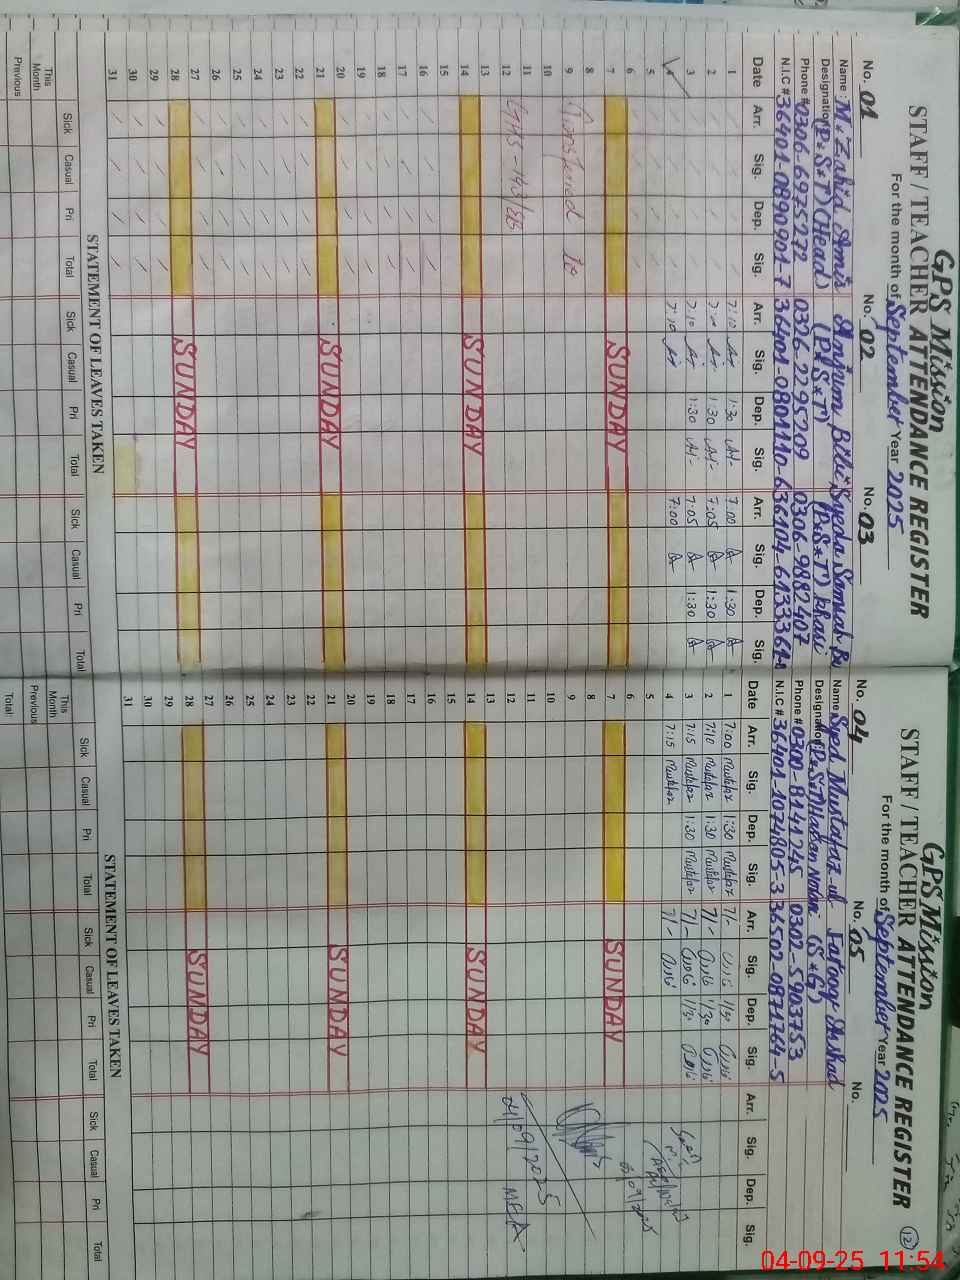 GPS Mission
STAFF / TEACHER ATTENDANCE REGISTER
For the month of September Year 2025
No. 01 No. 02 No. 03
Name: M. Zahid Anis Anjum Bibi Syeda
Designation (P*S*T) (Head) (P*S*T) (P*S*T)
Phone # 0306-6975272 0326-2295209 0306-9882407
N.I.C # 36401-0890901-7 36401-0801110-6
Date Arr. Sig. Dep. Sig. Arr. Sig. Dep. Sig. Arr. Sig. Dep. Sig.
1 7:10 1:30 7:00 1:30
2 7:10 1:30 7:05 1:30
3 7:10 1:30 7:05 1:30
4 7:10 7:00
5
6
7 SUNDAY
8
9 Transferred to
10
11
12
13
14 SUNDAY
15
16
17
18
19
20
21 SUNDAY
22
23
24
25
26
27
28 SUNDAY
29
30
31
STATEMENT OF LEAVES TAKEN
Sick Casual Pri Total Sick Casual Pri Total Sick Casual Pri Total
This Month
Previous
GPS Mission
STAFF / TEACHER ATTENDANCE REGISTER 12
For the month of September Year 2025
No. 04 No. 05 No.
Name Syed Farooq Arshad
Designation
Phone # 0300-8141245 0302-5903753
N.I.C # 36401-1074805-3 36502-0871764-5
Date Arr. Sig. Dep. Sig. Arr. Sig. Dep. Sig. Arr. Sig. Dep. Sig.
1 7:00 Mustafaz 1:30 Mustafaz 7/- 1/30
2 7:10 Mustafaz 1:30 Mustafaz 7/- 1/30
3 7:15 Mustafaz 1:30 Mustafaz 7/- 1/30
4 7:15 Mustafaz 7/-
5
6
7 SUNDAY
8
9
10
11
12 04/09/2025 MEA
13
14 SUNDAY
15
16
17
18
19
20
21 SUNDAY
22
23
24
25
26
27
28 SUNDAY
29
30
31
STATEMENT OF LEAVES TAKEN
Sick Casual Pri Total Sick Casual Pri Total Sick Casual Pri Total
This Month
Previous
Total
04-09-25 11:54